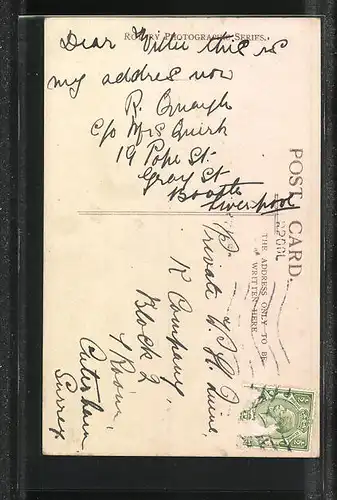 ROTARY PHOTOGRAPHIC SERIES.
Dear Willie this is
my addres now
R. Quayle
c/o Mrs Quirk
19 Pope St.
Gray St
Bootle
Liverpool
POST CARD.
THE ADDRESS ONLY TO BE
WRITTEN HERE
Private W. H.
K Company
Block 2
4 Room,
Caterham
Surrey